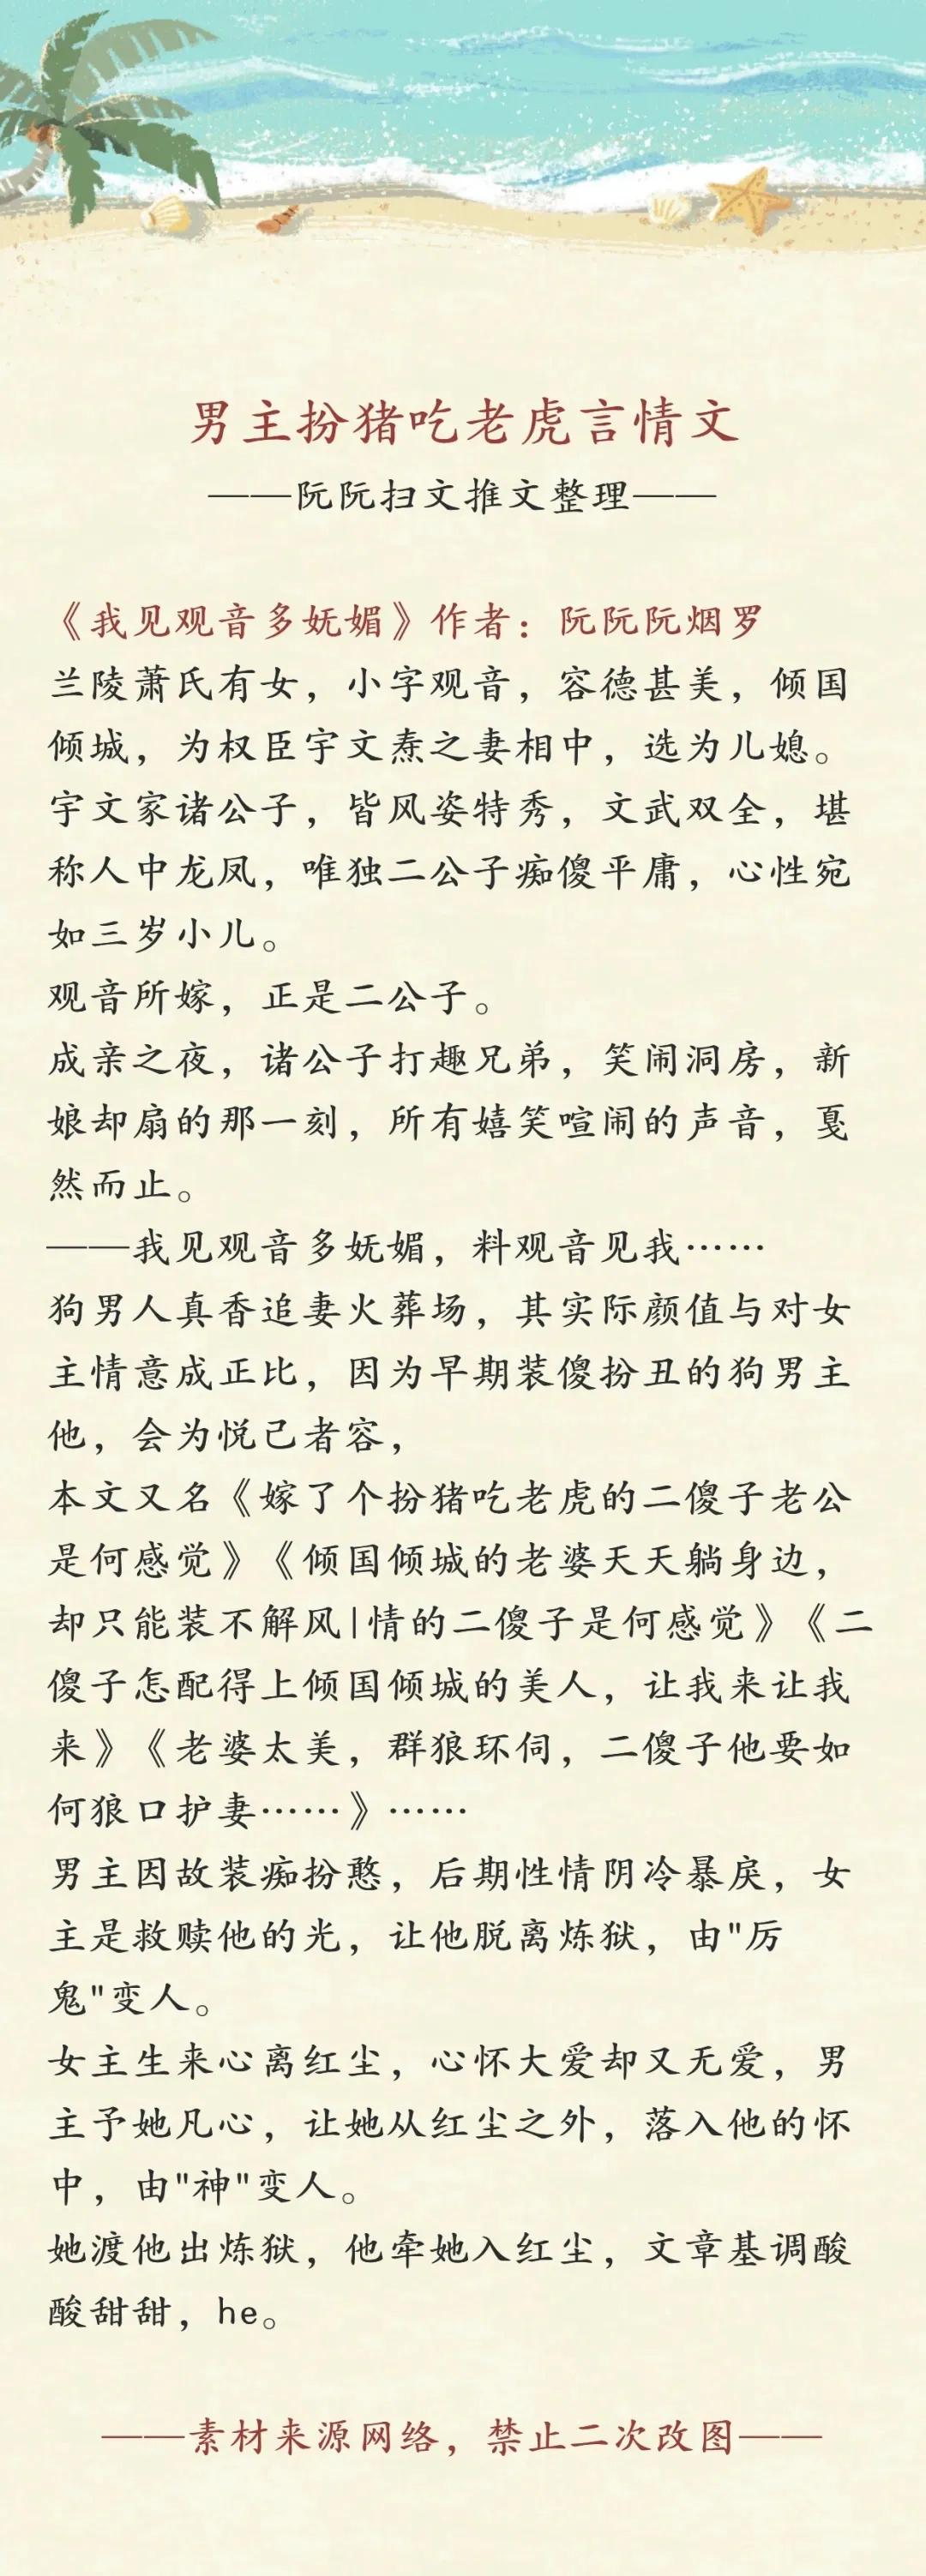 男主扮猪吃老虎言情文
——阮阮扫文推文整理——
《我见观音多妩媚》作者：阮阮阮烟罗
兰陵萧氏有女，小字观音，容德甚美，倾国
倾城，为权臣宇文焘之妻相中，选为儿媳。
宇文家诸公子，皆风姿特秀，文武双全，堪
称人中龙凤，唯独二公子痴傻平庸，心性宛
如三岁小儿。
观音所嫁，正是二公子。
成亲之夜，诸公子打趣兄弟，笑闹洞房，新
娘却扇的那一刻，所有嬉笑喧闹的声音，戛
然而止。
——我见观音多妩媚，料观音见我……
狗男人真香追妻火葬场，其实际颜值与对女
主情意成正比，因为早期装傻扮丑的狗男主
他，会为悦己者容，
本文又名《嫁了个扮猪吃老虎的二傻子老公
是何感觉》《倾国倾城的老婆天天躺身边，
却只能装不解风|情的二傻子是何感觉》《二
傻子怎配得上倾国倾城的美人，让我来让我
来》《老婆太美，群狼环伺，二傻子他要如
何狼口护妻……》……
男主因故装痴扮憨，后期性情阴冷暴戾，女
主是救赎他的光，让他脱离炼狱，由"厉
鬼"变人。
女主生来心离红尘，心怀大爱却又无爱，男
主予她凡心，让她从红尘之外，落入他的怀
中，由"神"变人。
她渡他出炼狱，他牵她入红尘，文章基调酸
酸甜甜，he。
——素材来源网络，禁止二次改图——